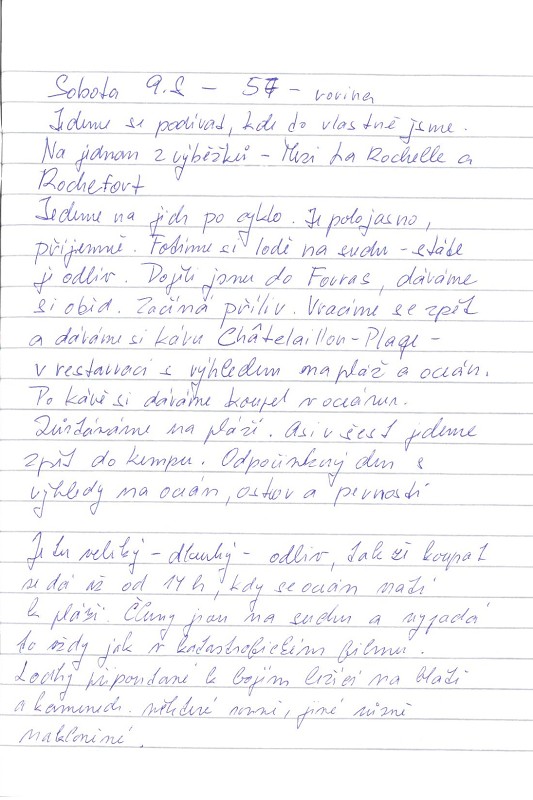 Sobota 9.8 – 57 – rovina
Jedeme se podívat, kde to vlastně jsme.
Na jednom z výběžků – Mezi La Rochelle a
Rochefort
Jedeme na jih po cyklo. Je polojasno,
příjemně. Fotíme si lodě na suchu – stále
je odliv. Dojeli jsme do Fouras, dáváme
si oběd. Začíná příliv. Vracíme se zpět
a dáváme si kávu Châtelaillon-Plage –
v restauraci s výhledem na pláž a oceán.
Po kávě si dáváme koupel v oceánu.
Zůstáváme na pláži. Asi v šest jedeme
zpět do kempu. Odpočinkový den s
výhledy na oceán, ostrov a pevnosti
Je tu veliký – dlouhý – odliv, takže koupat
se dá až od 17 h, kdy se oceán vrátí
k pláži. Čluny jsou na suchu a vypadá
to vždy jak v katastrofickém filmu.
Loďky připoutané k bojím ležící na blátě
a kamenech. některé rovně, jiné různě
nakloněné.